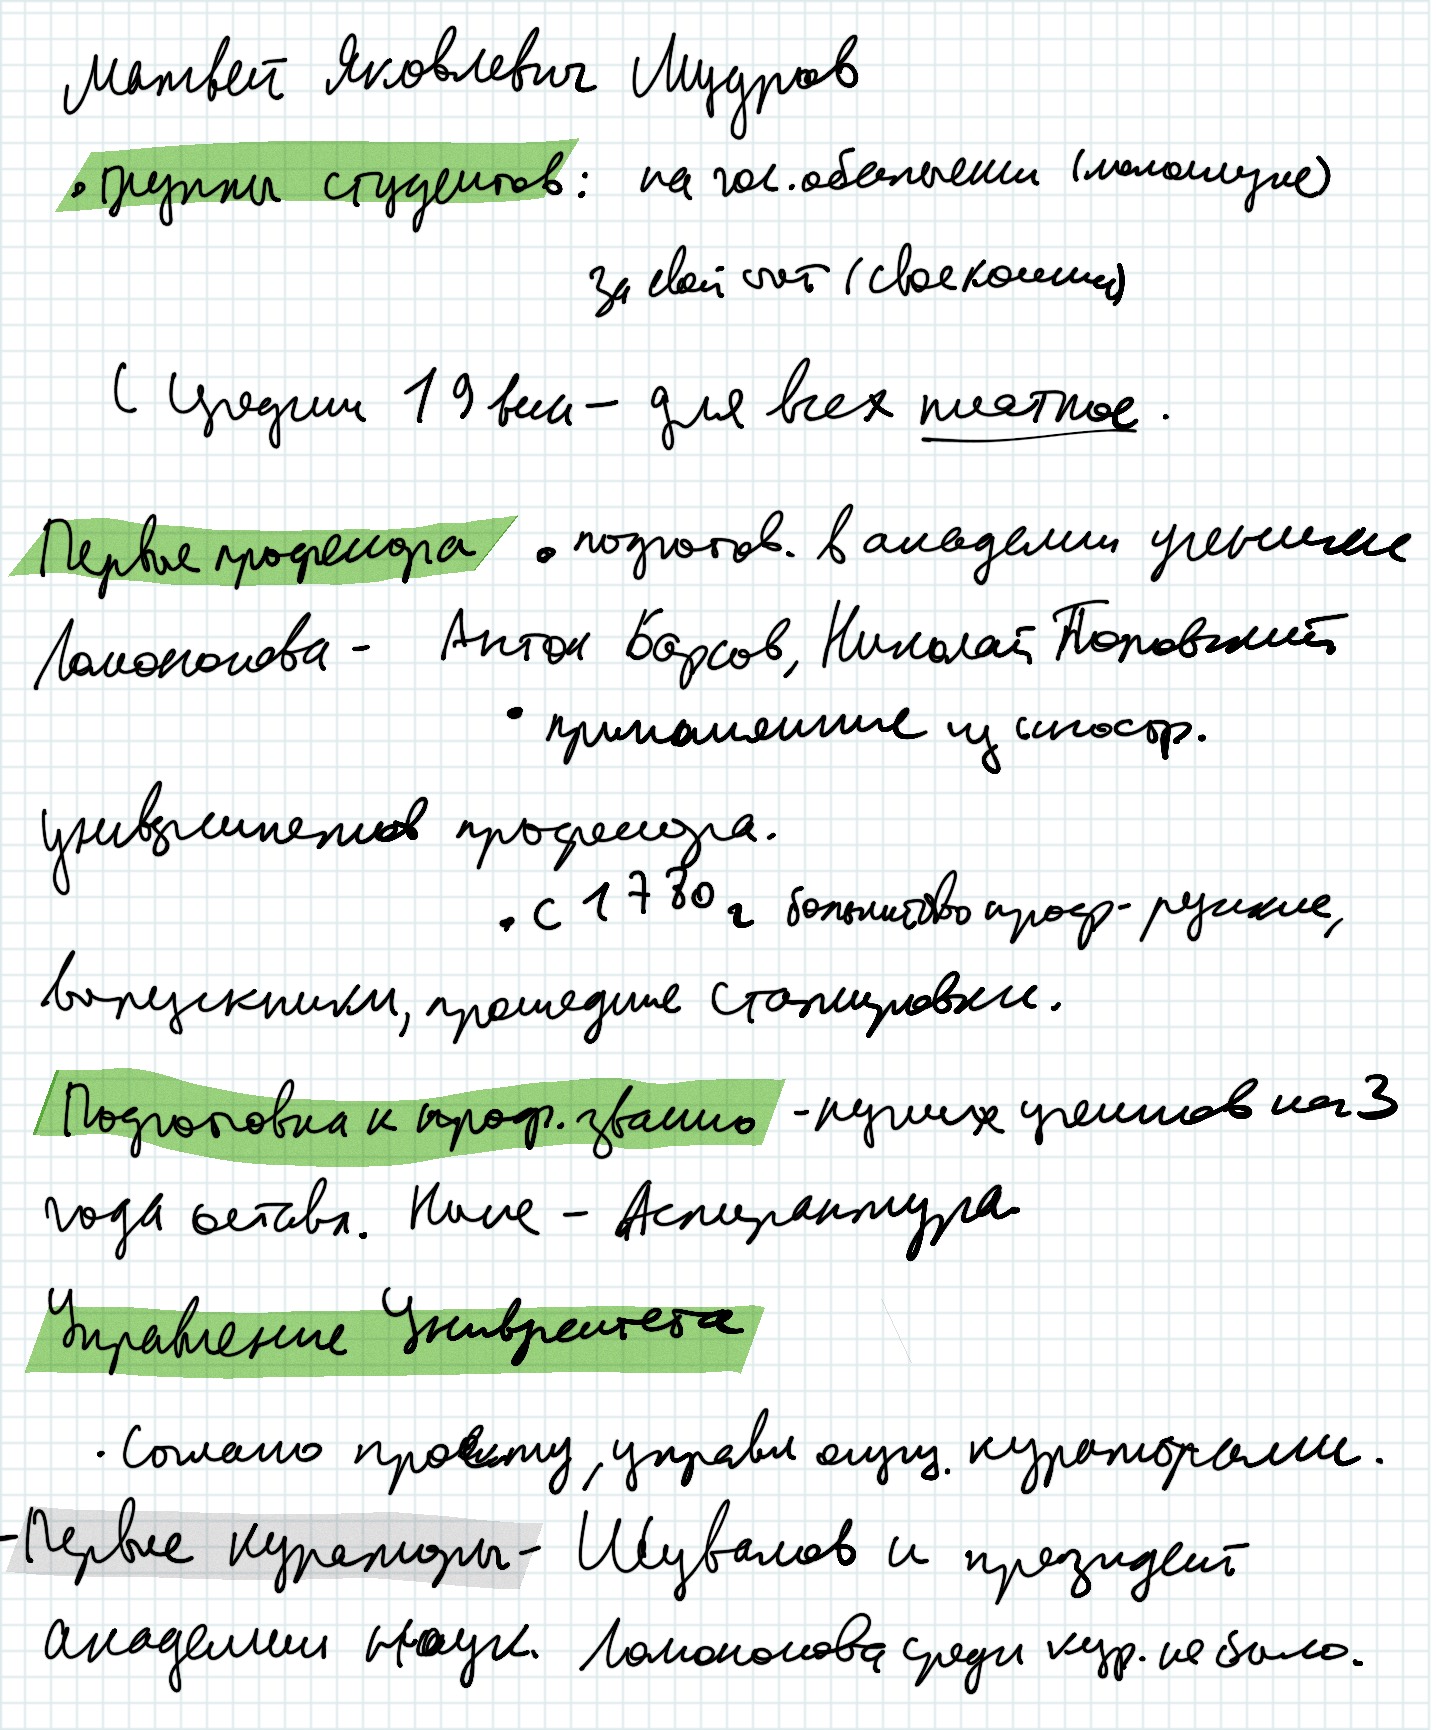 Матвей Яковлевич Мудров
• группы студентов: на гос. обеспечении (малоимущие)
за свой счёт (своекошт)
С середины 19 века – для всех платное.
Первые профессора • подготов. в академии ученики
Ломоносова – Антон Барсов, Николай Поповский
• приглашенные из иностр.
университетов профессора.
• С 1780 г большинство проф - русские,
выпускники, прошедшие стажировки.
Подготовка к проф. званию - лучших учеников на 3
года оставл. Ныне – Аспирантура
Управление Университета
• Согласно проекту, управл осущ. кураторами.
- Первые кураторы - Шувалов и президент
академии наук. Ломоносова среди кур. не было.